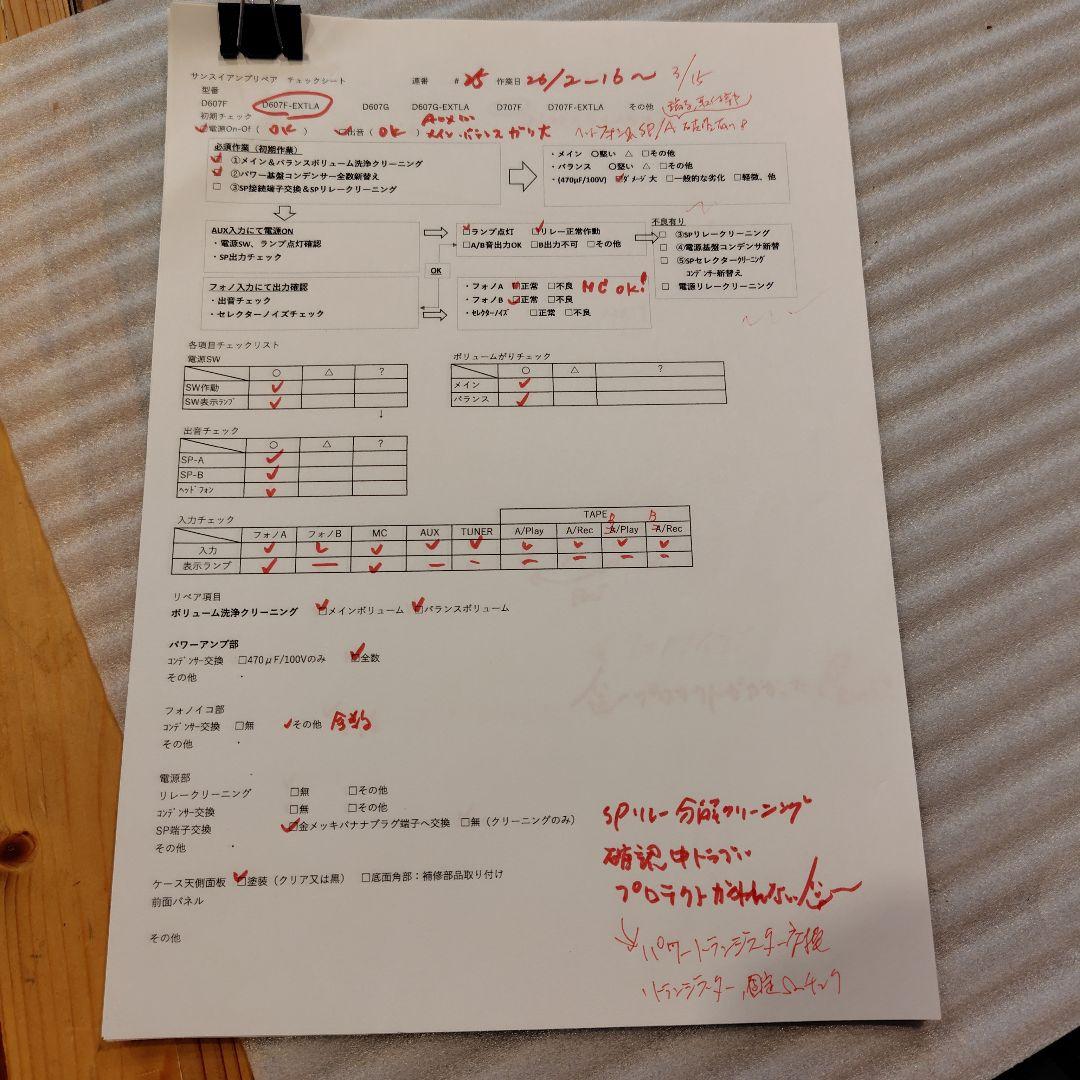 サンスイアンプリペア チェックシート 連番 # 25 作業日 26/2-16〜 3/15
型番
D607F D607F-EXTLA D607G D607G-EXTLA D707F D707F-EXTLA その他
初期チェック AUXに
☑電源On-Of ( OK ) ☑出音 ( OK ) メイン・バランスガリ大 ヘッドフォン SP/A
必須作業（初期作業）
☑ ①メイン＆バランスボリューム洗浄クリーニング
☑ ②パワー基盤コンデンサー全数新替え
□ ③SP接続端子交換＆SPリレークリーニング
・メイン 〇堅い △ □その他
・バランス 〇堅い △ □その他
・(470μF/100V) ☑ダメージ 大 □一般的な劣化 □軽微、他
AUX入力にて電源ON
・電源SW、ランプ点灯確認
・SP出力チェック
☑ランプ点灯 ☑リレー正常作動
□A/B音出力OK □B出力不可 □その他
不良有り
□ ③SPリレークリーニング
□ ④電源基盤コンデンサ新替
□ ⑤SPセレクタークリーニング
コンデンサー新替え
□ 電源リレークリーニング
OK
フォノ入力にて出力確認
・出音チェック
・セレクターノイズチェック
・フォノA ☑正常 □不良 MC OK!
・フォノB ☑正常 □不良
・ｾﾚｸﾀｰﾉｲｽﾞ □正常 □不良
各項目チェックリスト
電源SW
○ △ ?
SW作動 ✓
SW表示ﾗﾝﾌﾟ ✓
↓
ボリュームがりチェック
○ △ ?
メイン ✓
バランス ✓
出音チェック
○ △ ?
SP-A ✓
SP-B ✓
ﾍｯﾄﾞﾌｫﾝ ✓
入力チェック TAPE
フォノA フォノB MC AUX TUNER A/Play A/Rec B/Play B/Rec
入力 ✓ ✓ ✓ ✓ ✓ ✓ ✓ ✓ ✓
表示ランプ ✓ — ✓ — — — — — —
リペア項目
ボリューム洗浄クリーニング ☑メインボリューム ☑バランスボリューム
パワーアンプ部
ｺﾝﾃﾞﾝｻｰ交換 □470μF/100Vのみ ☑全数
その他 ・
フォノイコ部
ｺﾝﾃﾞﾝｻｰ交換 □無 ✓その他 全数
その他 ・
電源部
リレークリーニング □無 □その他
ｺﾝﾃﾞﾝｻｰ交換 □無 □その他
SP端子交換 ☑金メッキバナナプラグ端子へ交換 □無（クリーニングのみ）
その他 ・
ケース天側面板 ☑塗装（クリア又は黒） □底面角部：補修部品取り付け
前面パネル
その他
SPリレー分解クリーニング
確認中トラブル
プロテクトがきれない
パワートランジスター交換
トランジスター,固定